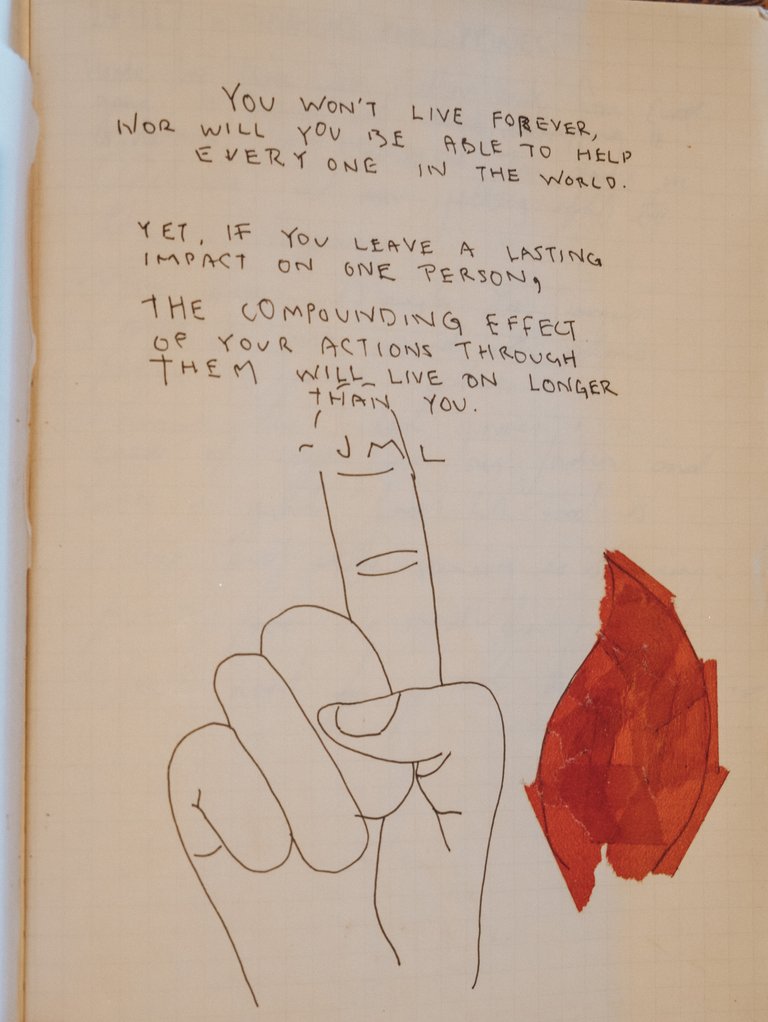 YOU WON'T LIVE FOREVER,
NOR WILL YOU BE ABLE TO HELP
EVERY ONE IN THE WORLD.
YET, IF YOU LEAVE A LASTING
IMPACT ON ONE PERSON,
THE COMPOUNDING EFFECT
OF YOUR ACTIONS THROUGH
THEM WILL LIVE ON LONGER
THAN YOU.
- JML